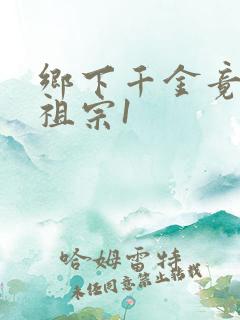 鄉下千金竟
祖宗1
哈姆雷特
未经同意禁止转载